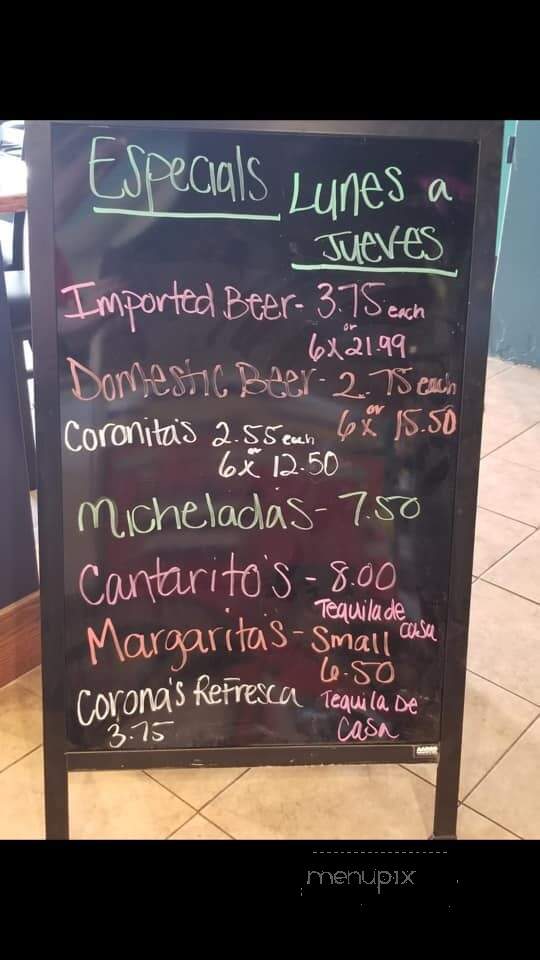 Especials Lunes a
Jueves
Imported Beer- 3.75 each
or
6x21.99
Domestic Beer- 2.75 each
or
6x 15.50
Coronita's 2.55 each
or
6x 12.50
Micheladas- 7.50
Cantarito's - 8.00
Tequila de casa
Margarita's- Small
6.50
Corona's Refresca Tequila De
3.75 Casa
menupix